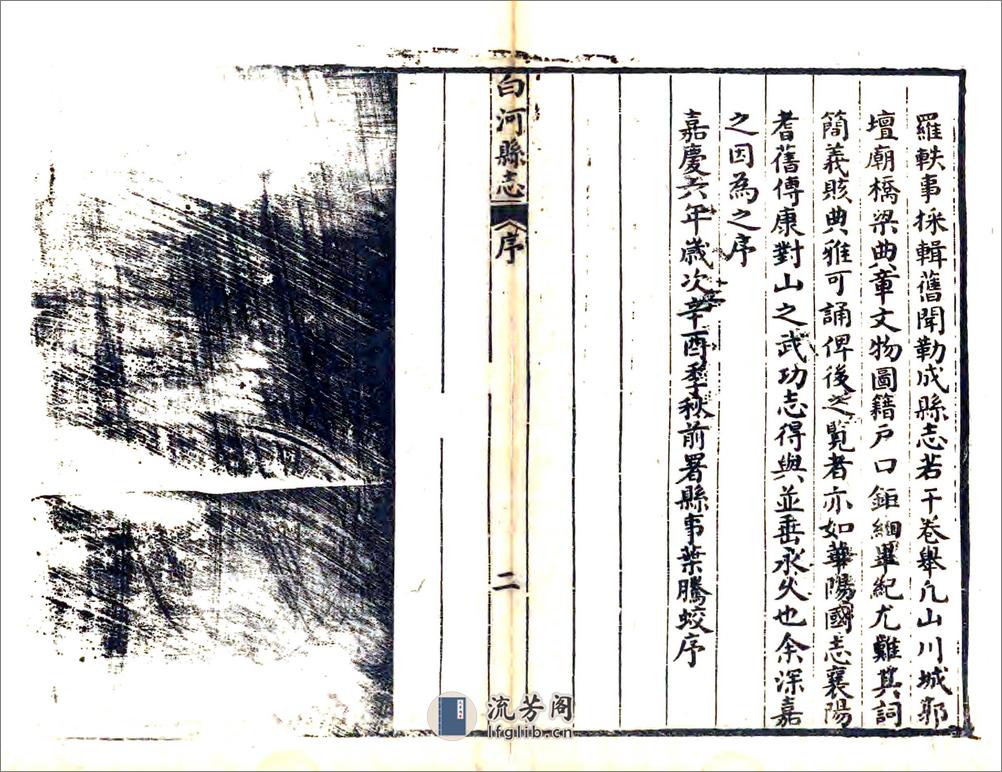 羅軼事採輯舊聞勒成縣志若干卷舉凡山川城郭
壇廟橋梁典章文物圖籍戶口鉅細畢紀尤難其詞
簡義賅典雅可誦俾後之覧者亦如華陽國志襄陽
耆舊傳康對山之武功志得與並垂永久也余深嘉
之因為之序
嘉慶六年歲次辛酉季秋前署縣事葉騰蛟序
白河縣志
序
二
流芳阁
lfglib.cn